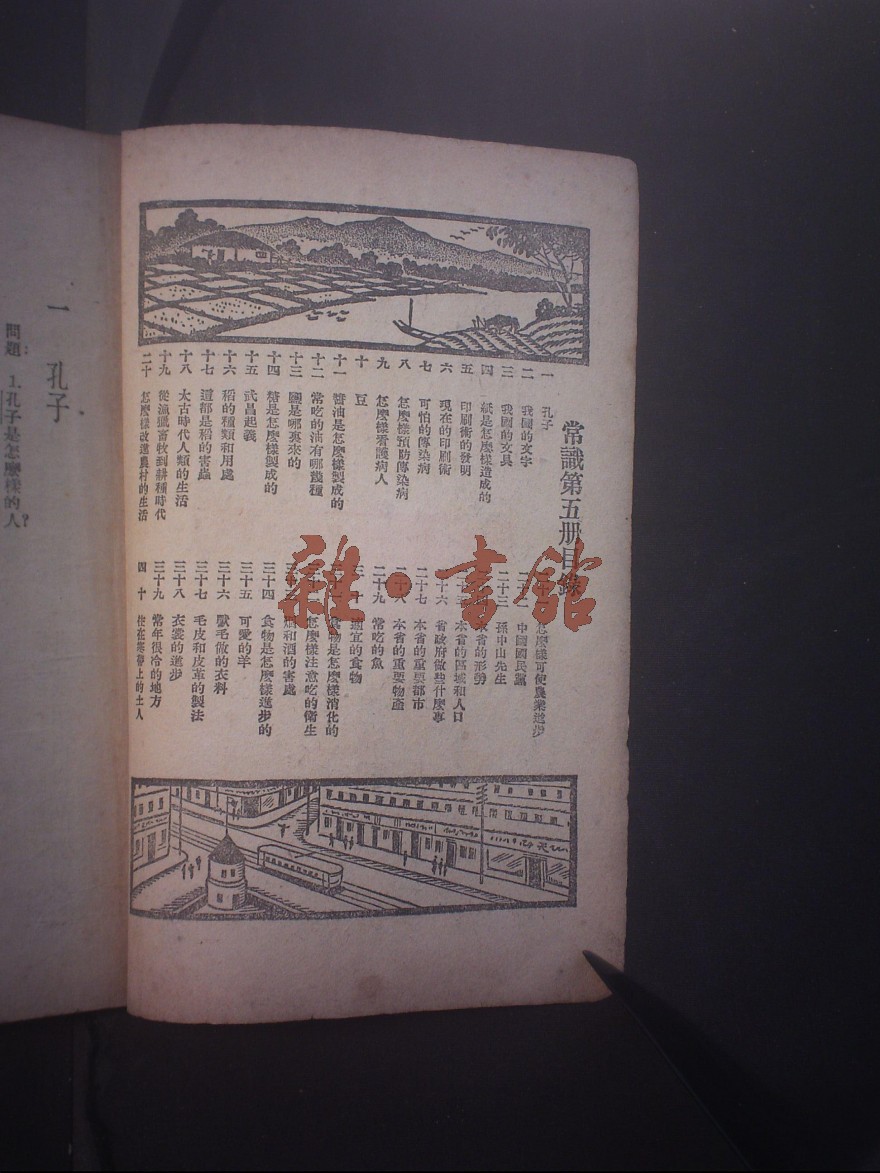 常識第五册目錄
一 孔子
二 我國的文字
三 我國的文具
四 紙是怎麽樣造成的
五 印刷術的發明
六 現在的印刷術
七 可怕的傳染病
八 怎麽樣預防傳染病
九 怎麽樣看護病人
十 豆
十一 醬油是怎麽樣製成的
十二 常吃的油有哪幾種
十三 鹽是哪裏來的
十四 糖是怎麽樣製成的
十五 武昌起義
十六 稻的種類和用處
十七 這都是稻的害蟲
十八 太古時代人類的生活
十九 從漁獵畜牧到耕種時代
二十 怎麽樣改進農村的生活
怎麽樣可使農業進步
中國國民黨
二十三 孫中山先生
省的形勢
本省的區域和人口
二十六 省政府做些什麽事
二十七 本省的重要都市
二十八 本省的重要物產
二十九 常吃的魚
三十 適宜的食物
食物是怎麽樣消化的
怎麽樣注意吃的衛生
烟和酒的害處
三十四 食物是怎麽樣進步的
三十五 可愛的羊
三十六 獸毛做的衣料
三十七 毛皮和皮革的製法
三十八 衣裳的進步
三十九 常年很冷的地方
四十 住在寒帶上的土人
雜·書館
一 孔子
問題： 1.孔子是怎麽樣的人？